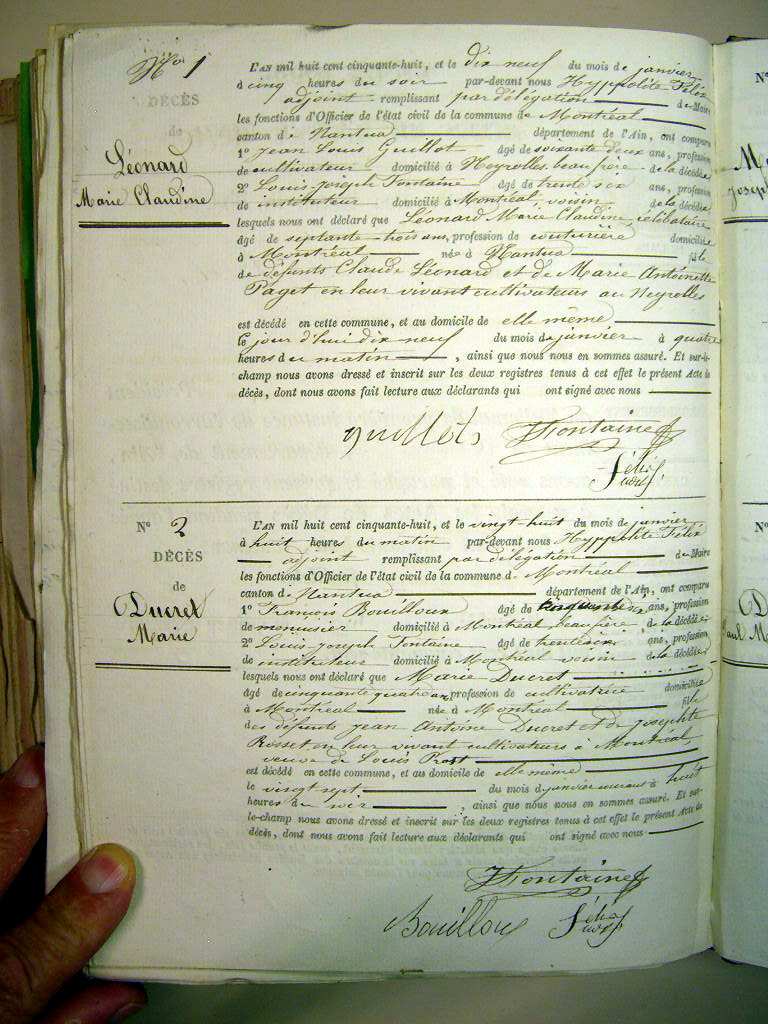 No 1
DÉCÈS
de
Léonard
Marie Claudine
L'AN mil huit cent cinquante-huit, et le dix neuf du mois de janvier
à cinq heures du soir par-devant nous Hyppolite Félix
adjoint remplissant par délégation de Maire
les fonctions d'Officier de l'état civil de la commune de Montréal
canton de Nantua département de l'Ain, ont comparu
1º Jean Louis Guillot âgé de soixante deux ans, profession
de cultivateur domicilié à Neyrolles beau frère de la décédée
2º Louis Joseph Fontaine âgé de trente six ans, profession
de instituteur domicilié à Montréal, voisin de la décédée
lesquels nous ont déclaré que Léonard Marie Claudine, célibataire
âgé de septante trois ans, profession de couturière domiciliée
à Montréal née à Nantua fille
de défunts Claude Léonard et de Marie Antoinette
Paget en leur vivant cultivateurs au Neyrolles
est décédé en cette commune, et au domicile de elle même
le jour d'hui dix neuf du mois de janvier à quatre
heures du matin, ainsi que nous nous en sommes assuré. Et sur-le-
champ nous avons dressé et inscrit sur les deux registres tenus à cet effet le présent Acte de
décès, dont nous avons fait lecture aux déclarants qui ont signé avec nous
Guillots Fontaine
Félix
No 2
DÉCÈS
de
Ducret
Marie
L'AN mil huit cent cinquante-huit, et le vingt huit du mois de janvier
à huit heures du matin par-devant nous Hyppolite Félix
adjoint remplissant par délégation de Maire
les fonctions d'Officier de l'état civil de la commune de Montréal
canton de Nantua département de l'Ain, ont comparu
1º François Bouilloux âgé de ans, profession
de menuisier domicilié à Montréal, beau frère de la décédée
2º Louis Joseph Fontaine âgé de trente six ans, profession
de instituteur domicilié à Montréal voisin de la décédée
lesquels nous ont déclaré que Marie Ducret
âgé de cinquante quatre ans profession de cultivatrice domiciliée
à Montréal née à Montréal fille
des défunts Jean Antoine Ducret et de Josephte
Rosset en leur vivant cultivateurs à Montréal,
veuve de Louis Prost
est décédé en cette commune, et au domicile de elle même
le vingt sept du mois de janvier courant à huit
heures du soir, ainsi que nous nous en sommes assuré. Et sur-
le-champ nous avons dressé et inscrit sur les deux registres tenus à cet effet le présent Acte de
décès, dont nous avons fait lecture aux déclarants qui ont signé avec nous
Fontaine
Bouilloux Félix